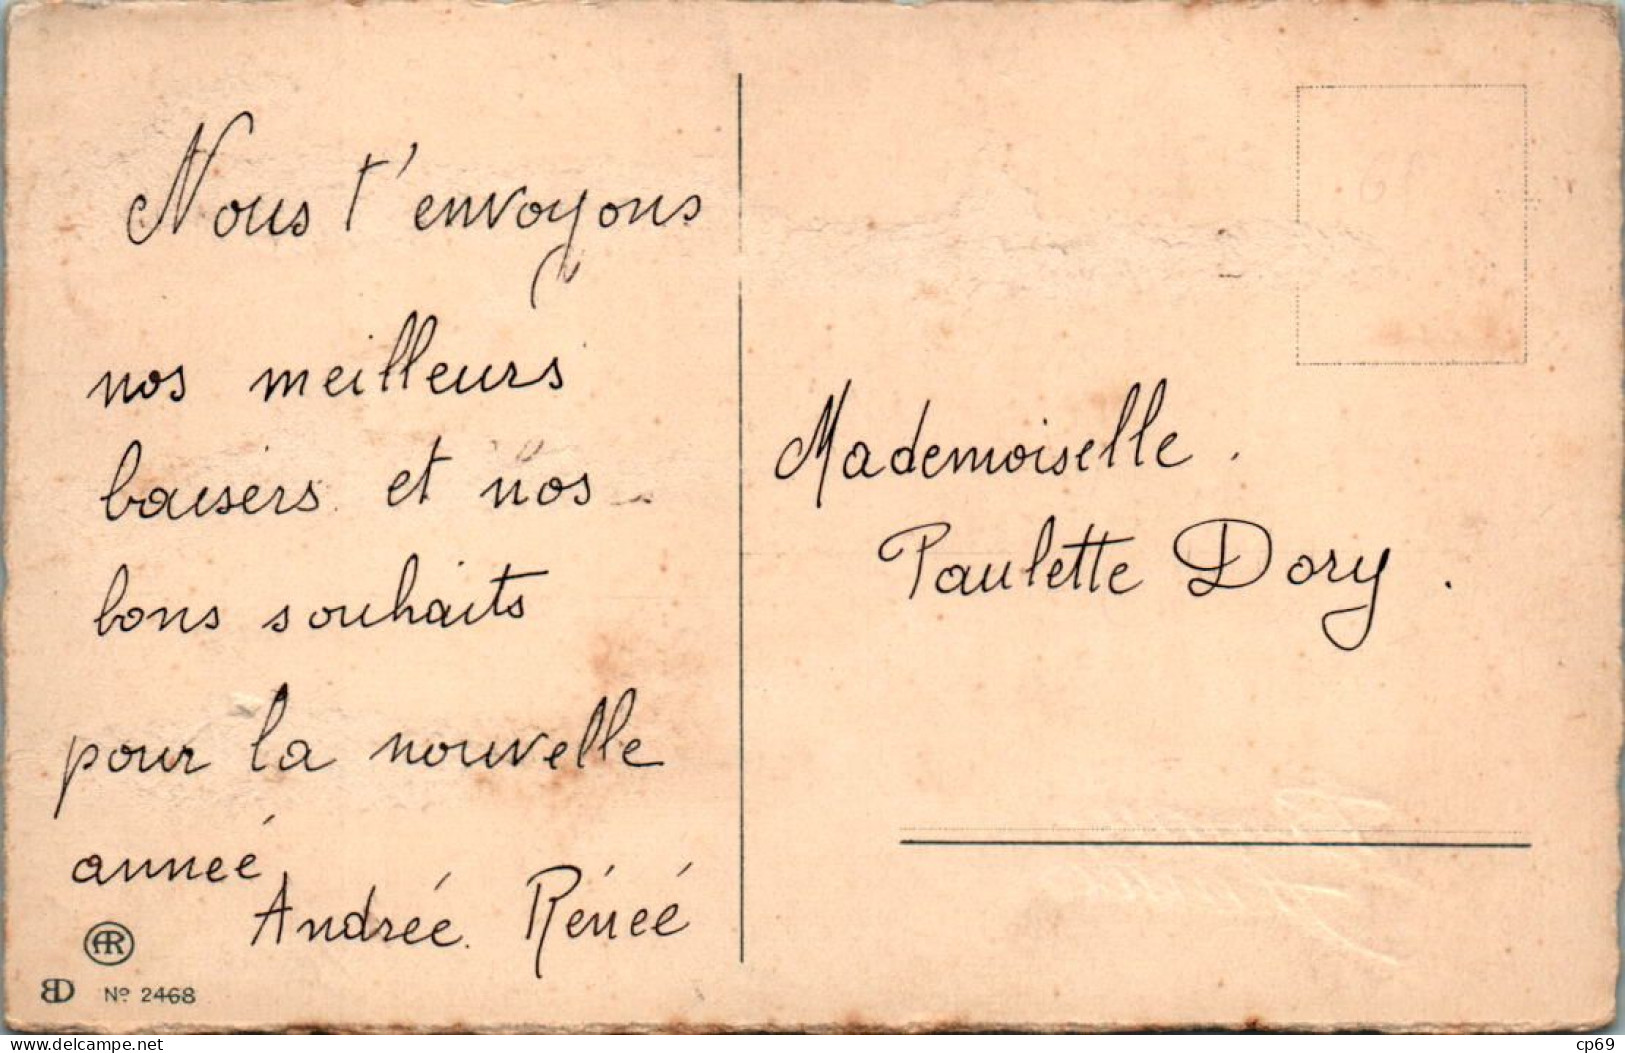 Nous t'envoyons
nos meilleurs
baisers et nos
bons souhaits
pour la nouvelle
année
Andrée. Rénéé
AR
BD Nº 2468
Mademoiselle.
Paulette Dory.
www.delcampe.net
cp69